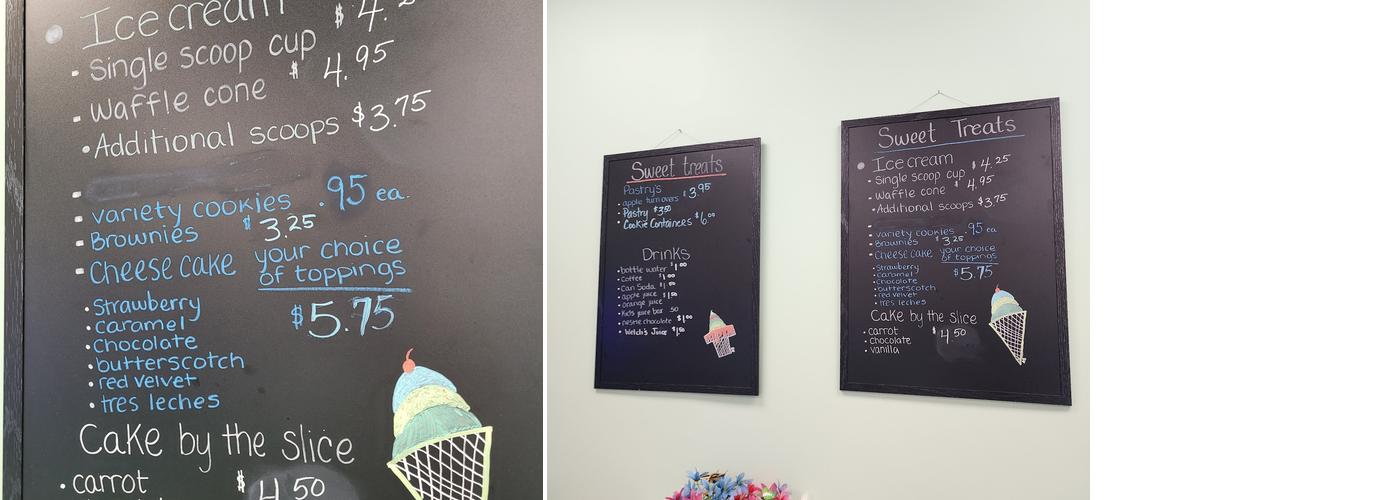 Ice cream $ 4.2
Single scoop cup
Waffle cone $ 4.95
Additional scoops $3.75
variety cookies .95 ea.
Brownies $ 3.25
Cheese cake your choice
of toppings
Strawberry $5.75
caramel
Chocolate
butterscotch
red velvet
tres leches
Cake by the slice
carrot $ 4.50
Sweet treats
Pastry's
apple turnovers $3.95
Pastry $3.50
Cookie Containers $6.00
Drinks
bottle water $1.00
Coffee $1.00
Can Soda $1.50
apple juice $1.50
orange juice
Kids juice box .50
chocolate $1.00
Welch's Juice $1.50
Sweet Treats
Ice cream $ 4.25
Single scoop cup
Waffle cone $ 4.95
Additional scoops $3.75
variety cookies .95 ea
Brownies $ 3.25
Cheese cake your choice
of toppings
Strawberry $5.75
caramel
chocolate
butterscotch
red velvet
tres leches
Cake by the slice
carrot $ 4.50
chocolate
vanilla